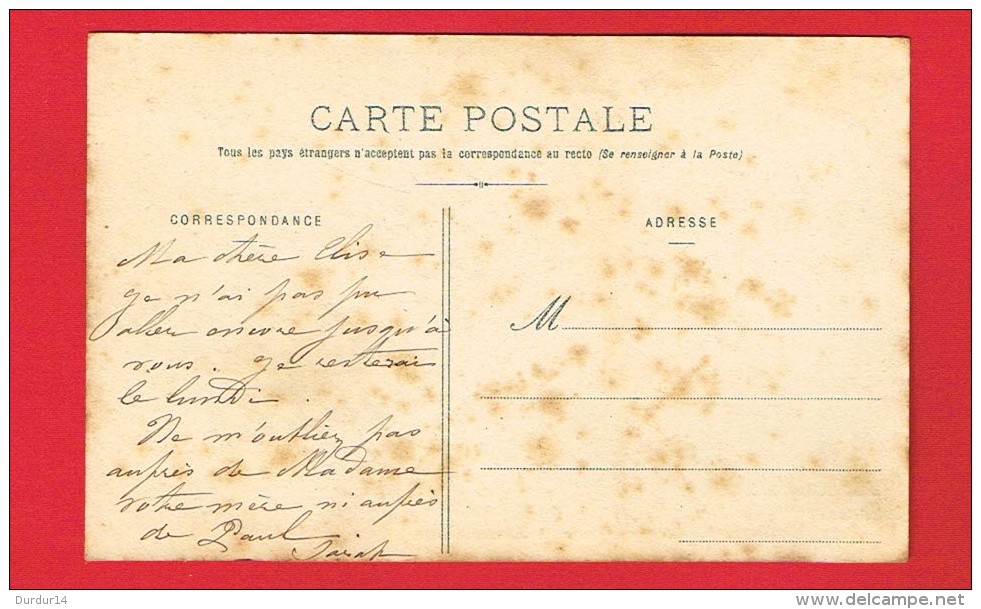 CARTE POSTALE
Tous les pays étrangers n'acceptent pas la correspondance au recto (Se renseigner à la Poste)
CORRESPONDANCE
Ma chère Elise
je n'ai pas pu
aller encore jusqu'à
vous. Je resterai
le lundi.
Ne m'oubliez pas
auprès de Madame
votre mère ni auprès
de Paul
Sarah
ADRESSE
M
Durdur14
www.delcampe.net